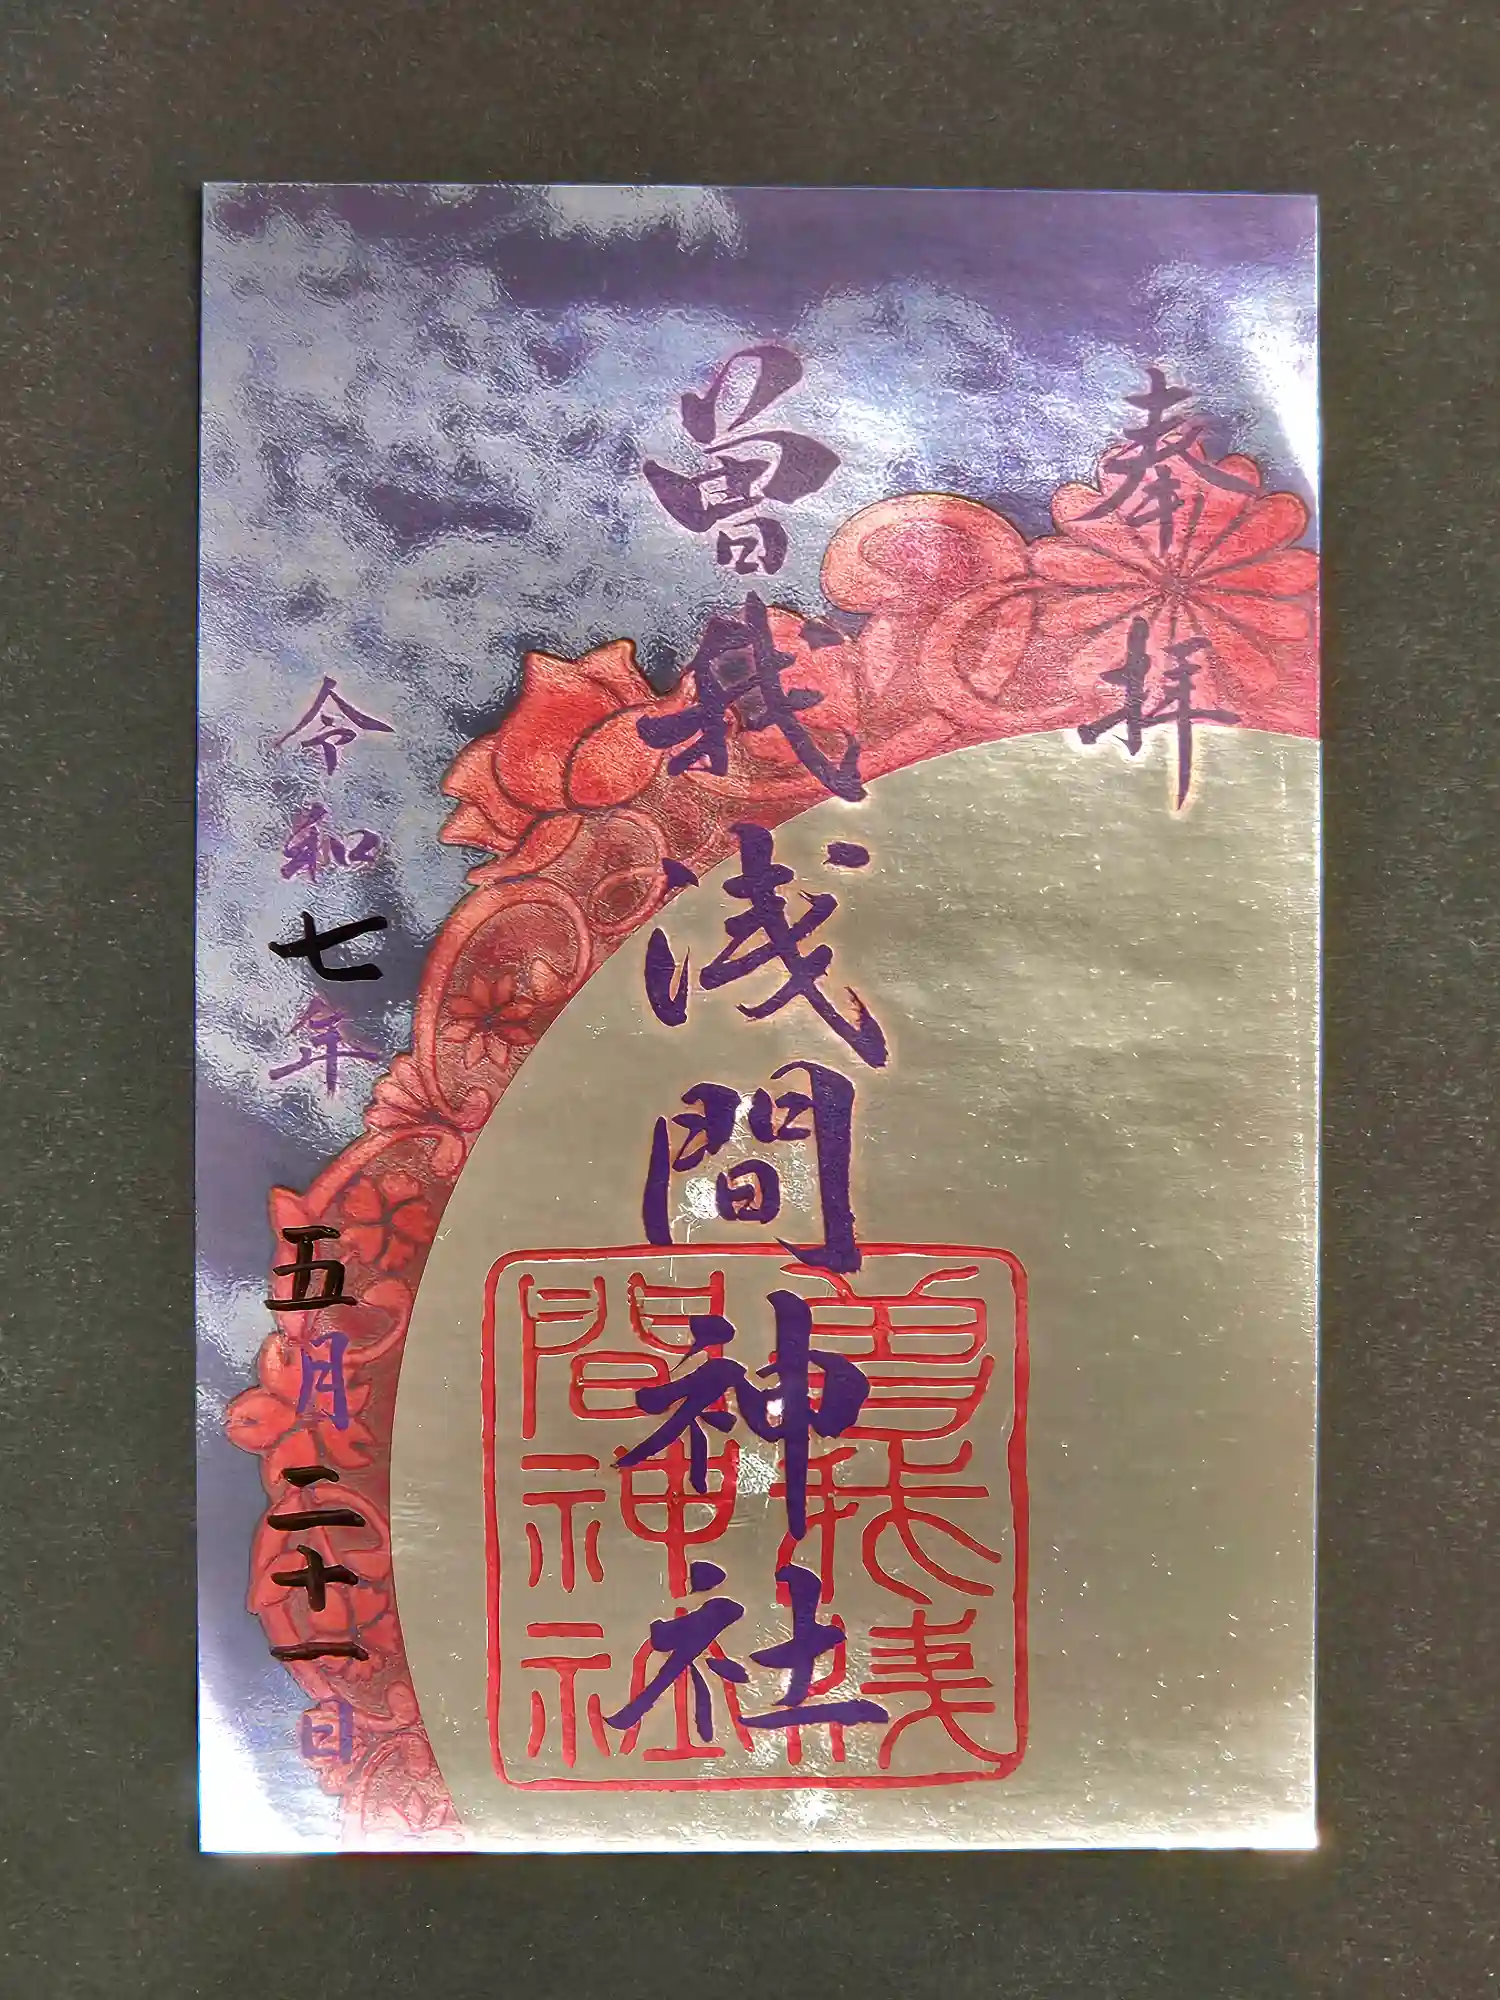 奉拝
曽我浅間神社
曽我淺
間神社
令和七年五月二十一日